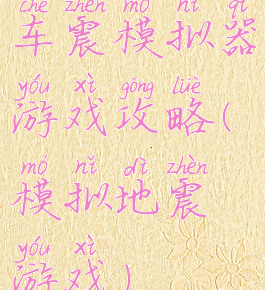 chē zhèn mó nǐ qì
车震模拟器
yóu xì gōng lüè
游戏攻略(
mó nǐ dì zhèn
模拟地震
yóu xì
游戏)